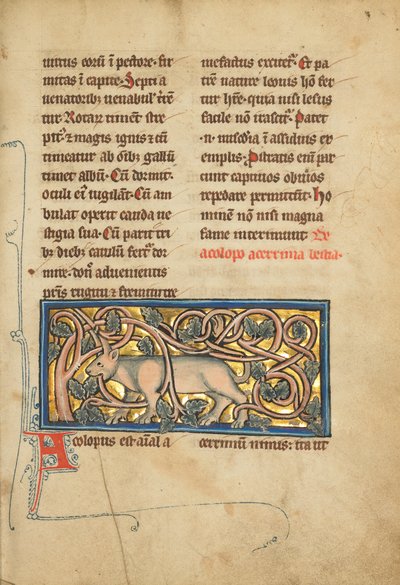 uirtus eoꝝ ĩ pectore. fir
mitas ĩ capite. Septi a
uenatoribꝫ uenabul᷑ t̃rẽ
tur Rotaꝝ timẽt stre
pit᷒ ⁊ magis ignis ⁊ cũ
timeatur ab õibꝫ gallũ
timet albũ. Cũ dormit
oculi ei᷒ uigilãt. Cũ am
bulat operit cauda ue
stigia sua. Cũ parit tri
bꝫ diebꝫ catulũ fert᷑ dor
mire. don̾ adueniens
pr̃is rugitu ⁊ fremitu
mefactus excitet᷑. Et pa
trẽ nature leonis hõ fer
tur hr̃e. quia nisi lesus
facile nõ irascit᷑. Patet
.n. mĩa ĩ assiduis ex
emplis. Pstratis em̃ par
cunt captiuos obuios
repedare permittũt. Ho
minẽ nõ nisi magna
fame interimunt De
acolopo acerrima bestia.
Acolopus est aĩal a
cerrimũ nimis: ita ut